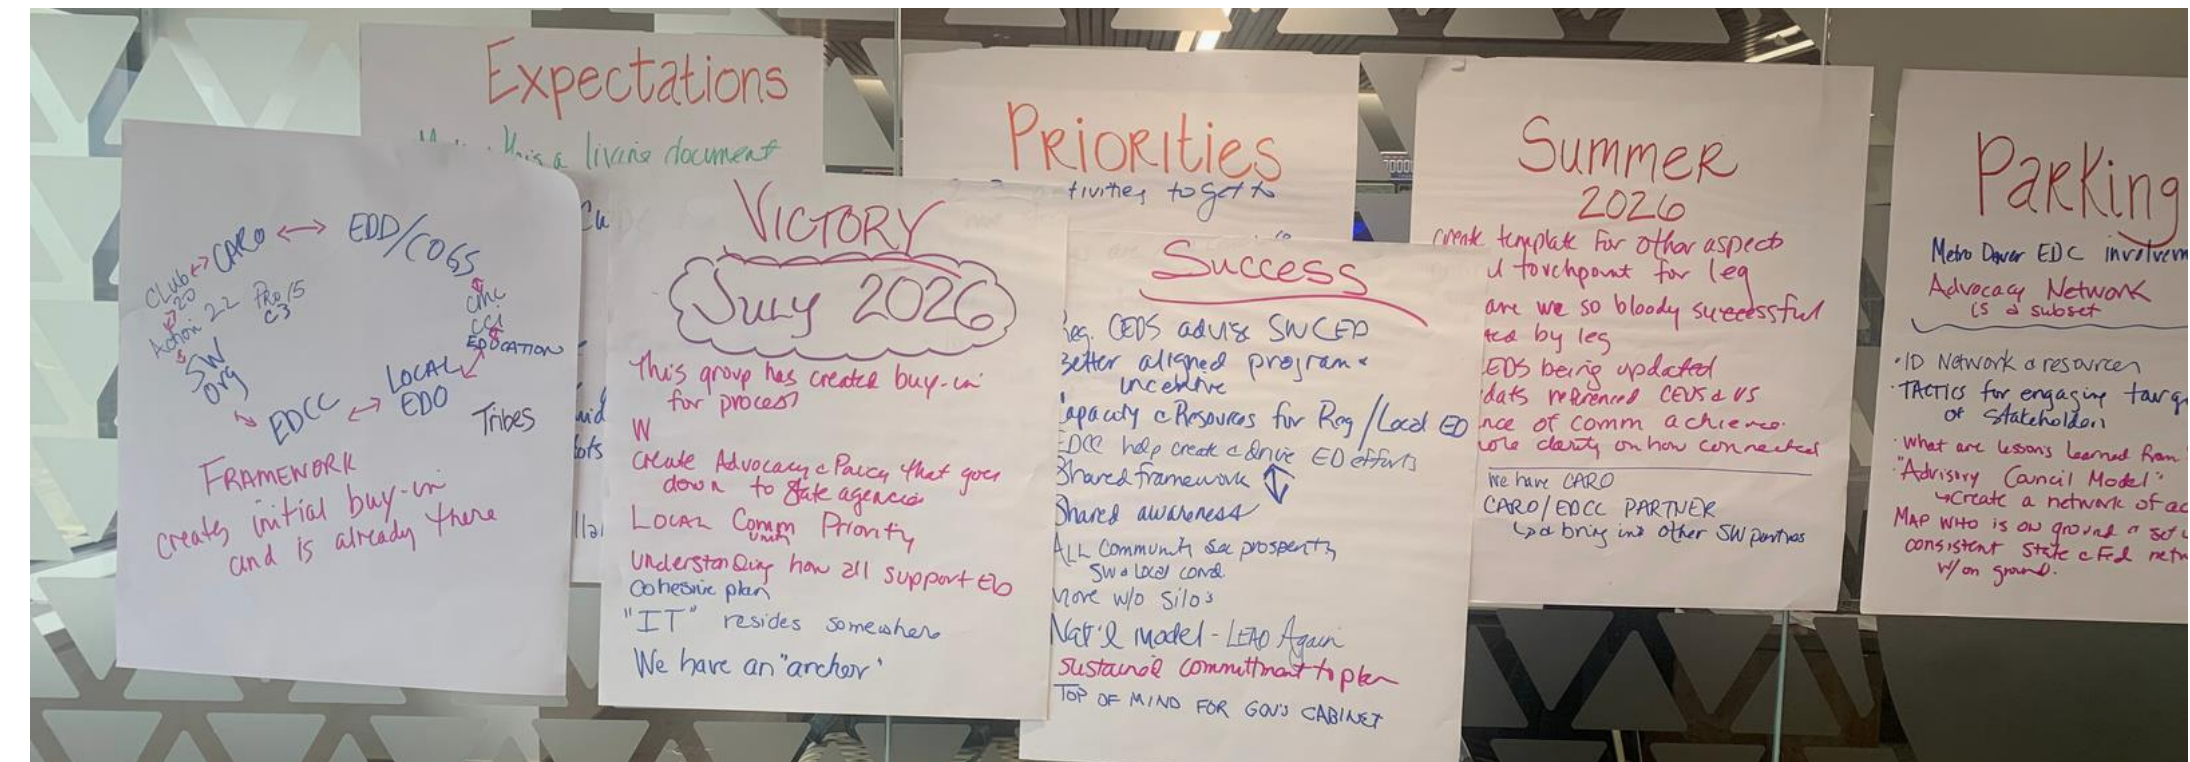 Expectations
this a living document
Cu
CARO ↔ EDD/COGS
CLub
20
Action 22 PRO 15
C3
SW
Org
CCI
EDUCATION
LOCAL
EDO
EDCC
Tribes
FRAMEWORK
creates initial buy-in
and is already there
VICTORY
July 2026
This group has created buy-in
for process
W
Create Advocacy & Policy that goes
down to state agencies
LOCAL Comm Priority
unity
Understanding how all support ED
Cohesive plan
"IT" resides somewhere
We have an "anchor"
Priorities
tivities to get to
Success
Reg. CEDS advise SWCED
Better aligned program &
incentive
Capacity & Resources for Reg/Local ED
EDCC help create & drive ED efforts
Shared framework
Shared awareness
ALL Community see prosperity
SW & Local
More w/o Silo's
Nat'l Model - LEAD Again
Sustained committment to plan
TOP OF MIND FOR GOV'S CABINET
Summer
2026
create template for other aspects
touchpoint for leg
are we so bloody successful
by leg
EDS being updated
dats referenced CEDS & VS
nce of comm achieve.
more clarity on how connected
We have CARO
CARO/EDCC PARTNER
↳ & bring in other SW partners
Parking
Metro Denver EDC involvem
Advocacy Network
is a subset
• ID Network & resources
• TACTICS for engaging targ
of Stakeholders
• What are lessons learned from
• "Advisory Council Model"
↳ Create a network of ac
MAP WHO is on ground & set
consistent State & Fed netw
w/on ground.